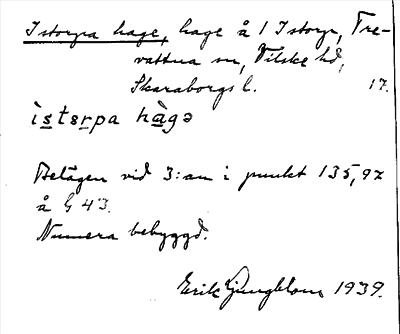 Istorpa hage, hage å 1 Istorp, Tre-
vattna sn, Vilske hd,
Skaraborgs l. 17.
ìstɛrpa hàgə
Belägen vid 3:an i punkt 135,92
å G 43.
Numera bebyggd.
Erik Ljungblom 1939.